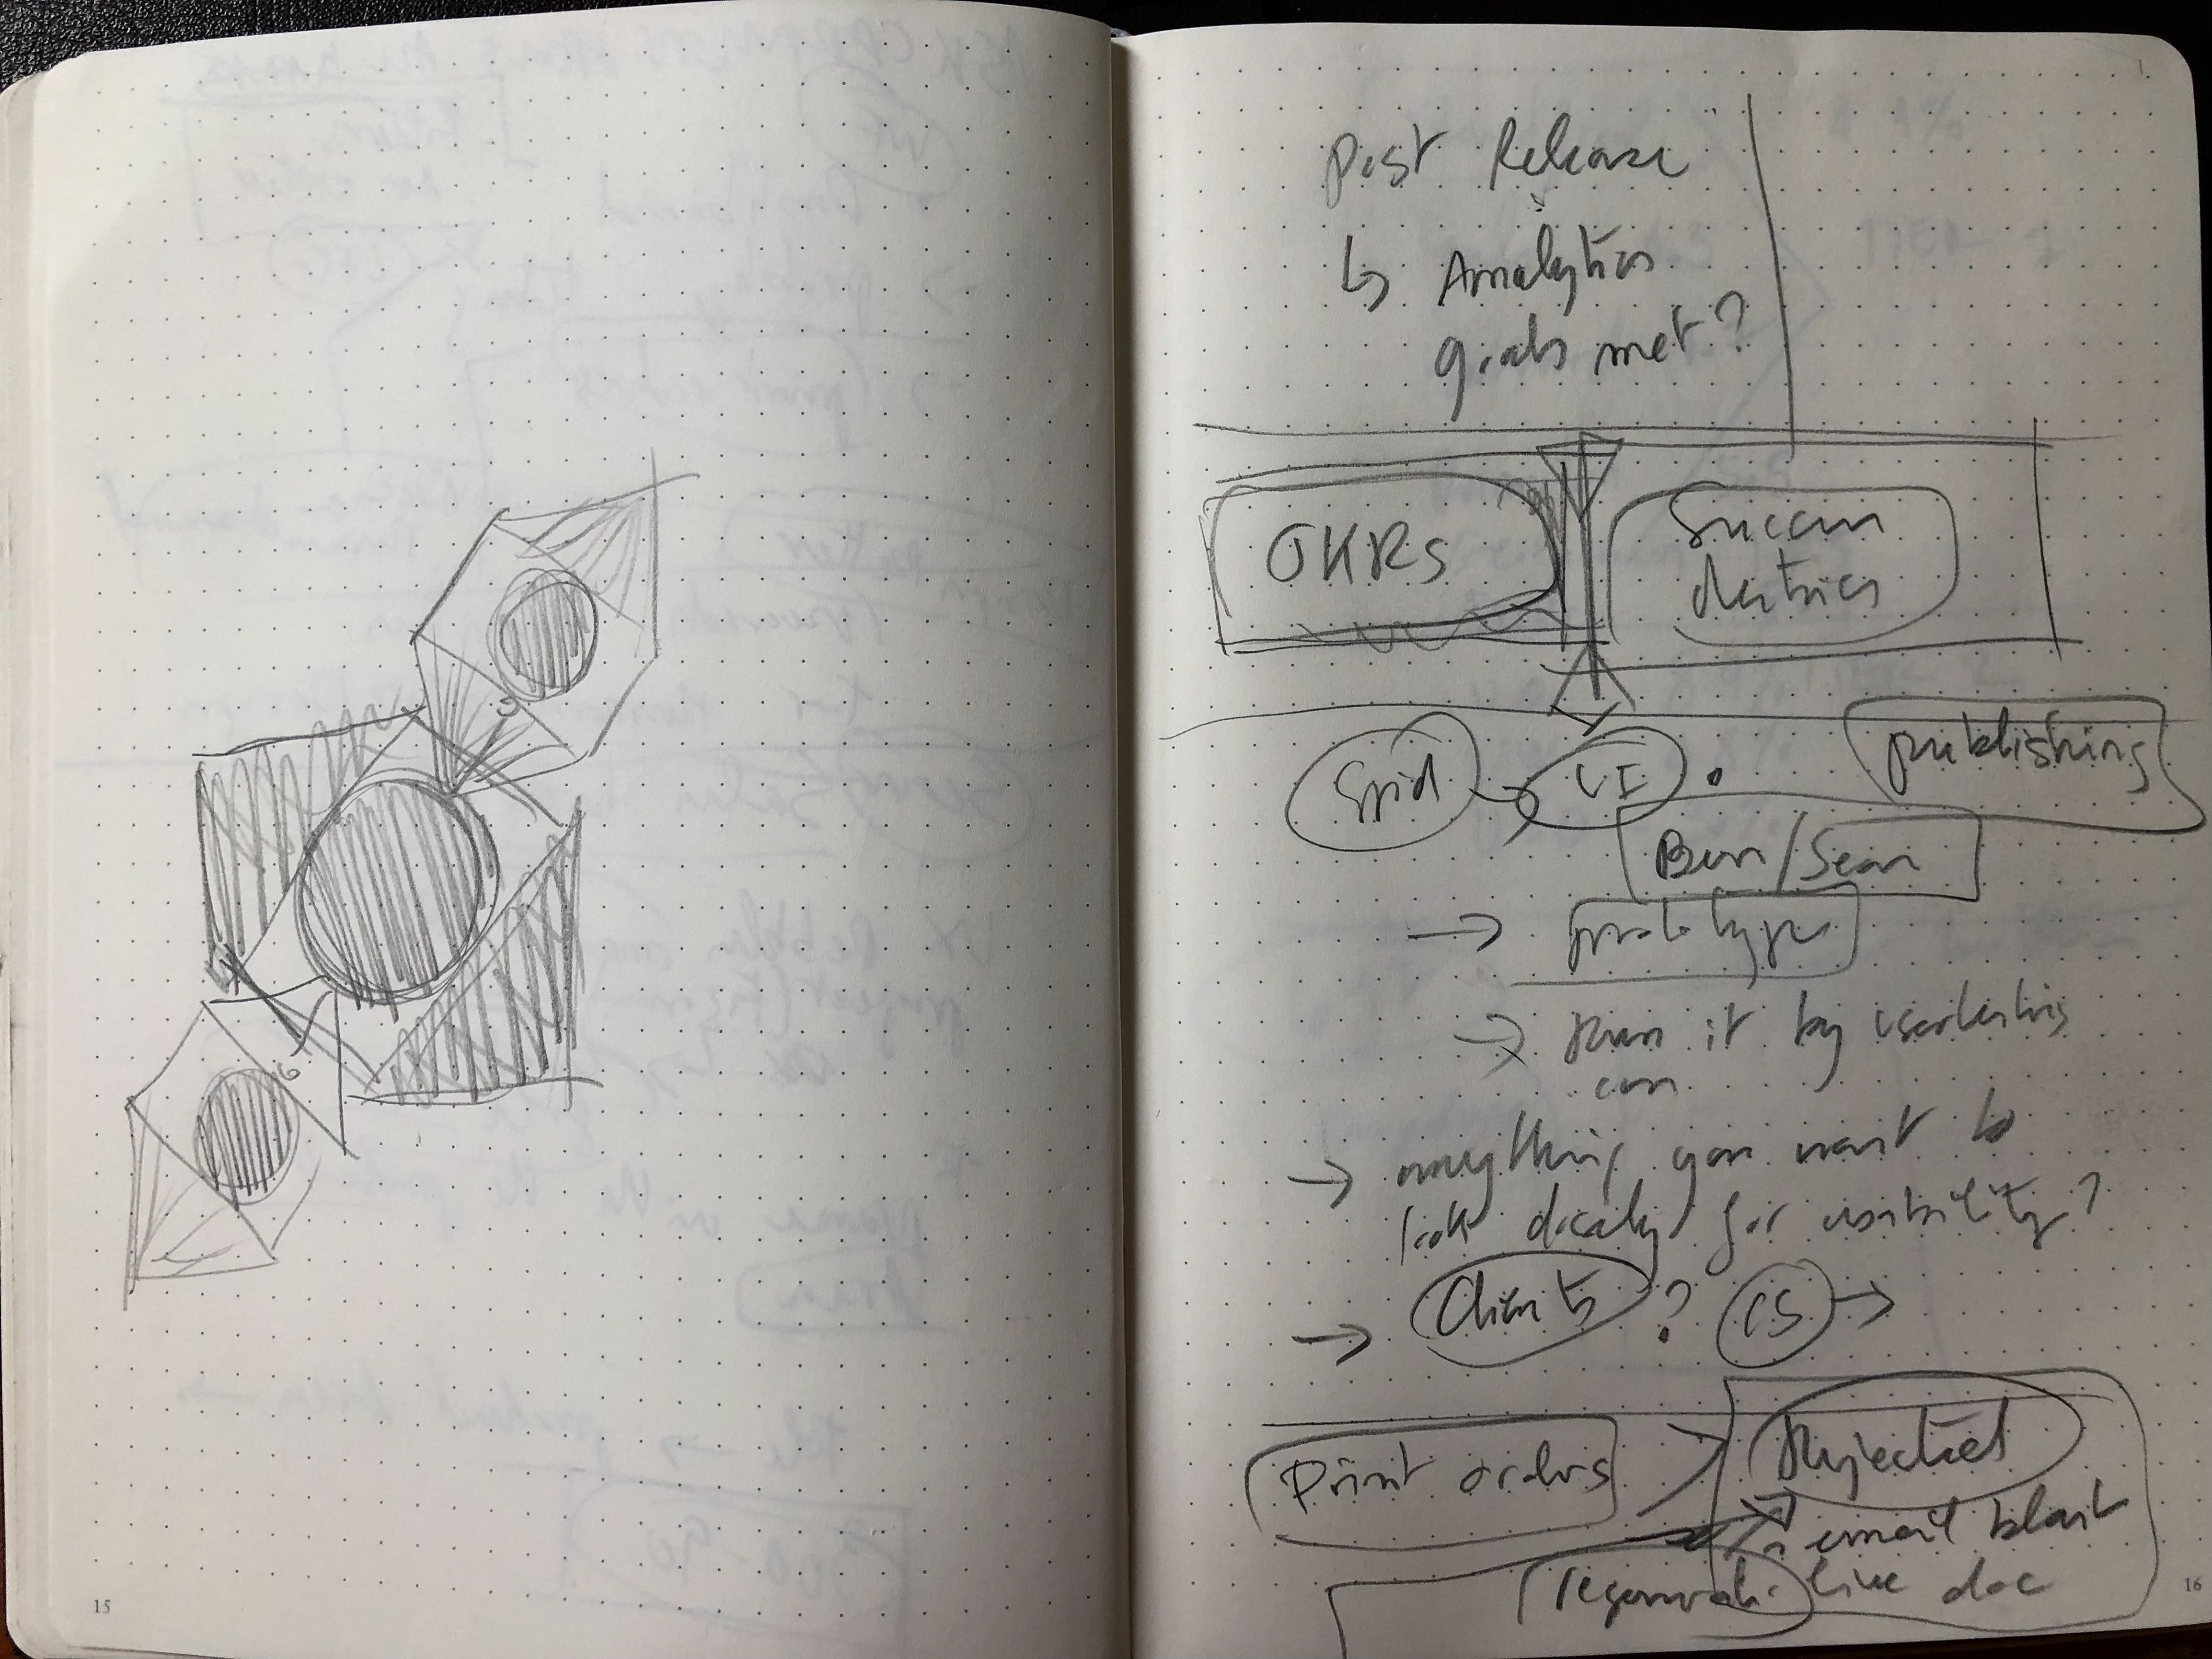 Post Release
↳ Analytics
goals met?
OKRs
Success
Metrics
Grid → UI
publishing
Ben/Sean
→ prototype
→ Run it by usertesting
com
→ anything you want to
look closely for usability?
→ Clients? CS →
Print orders
Rejected
email blast
live doc
15
16